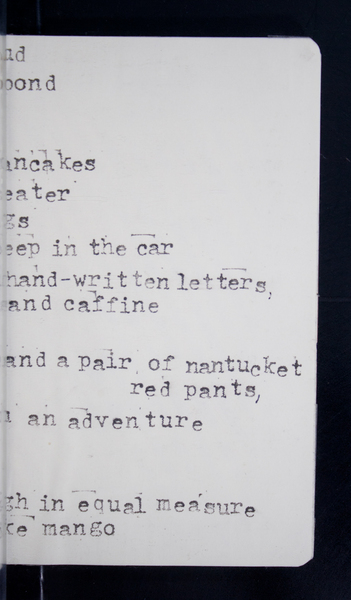 ud
pond
ancakes
eater
gs
eep in the car
hand-written letters,
and caffine
and a pair of nantucket
red pants,
an adventure
gh in equal measure
ke mango